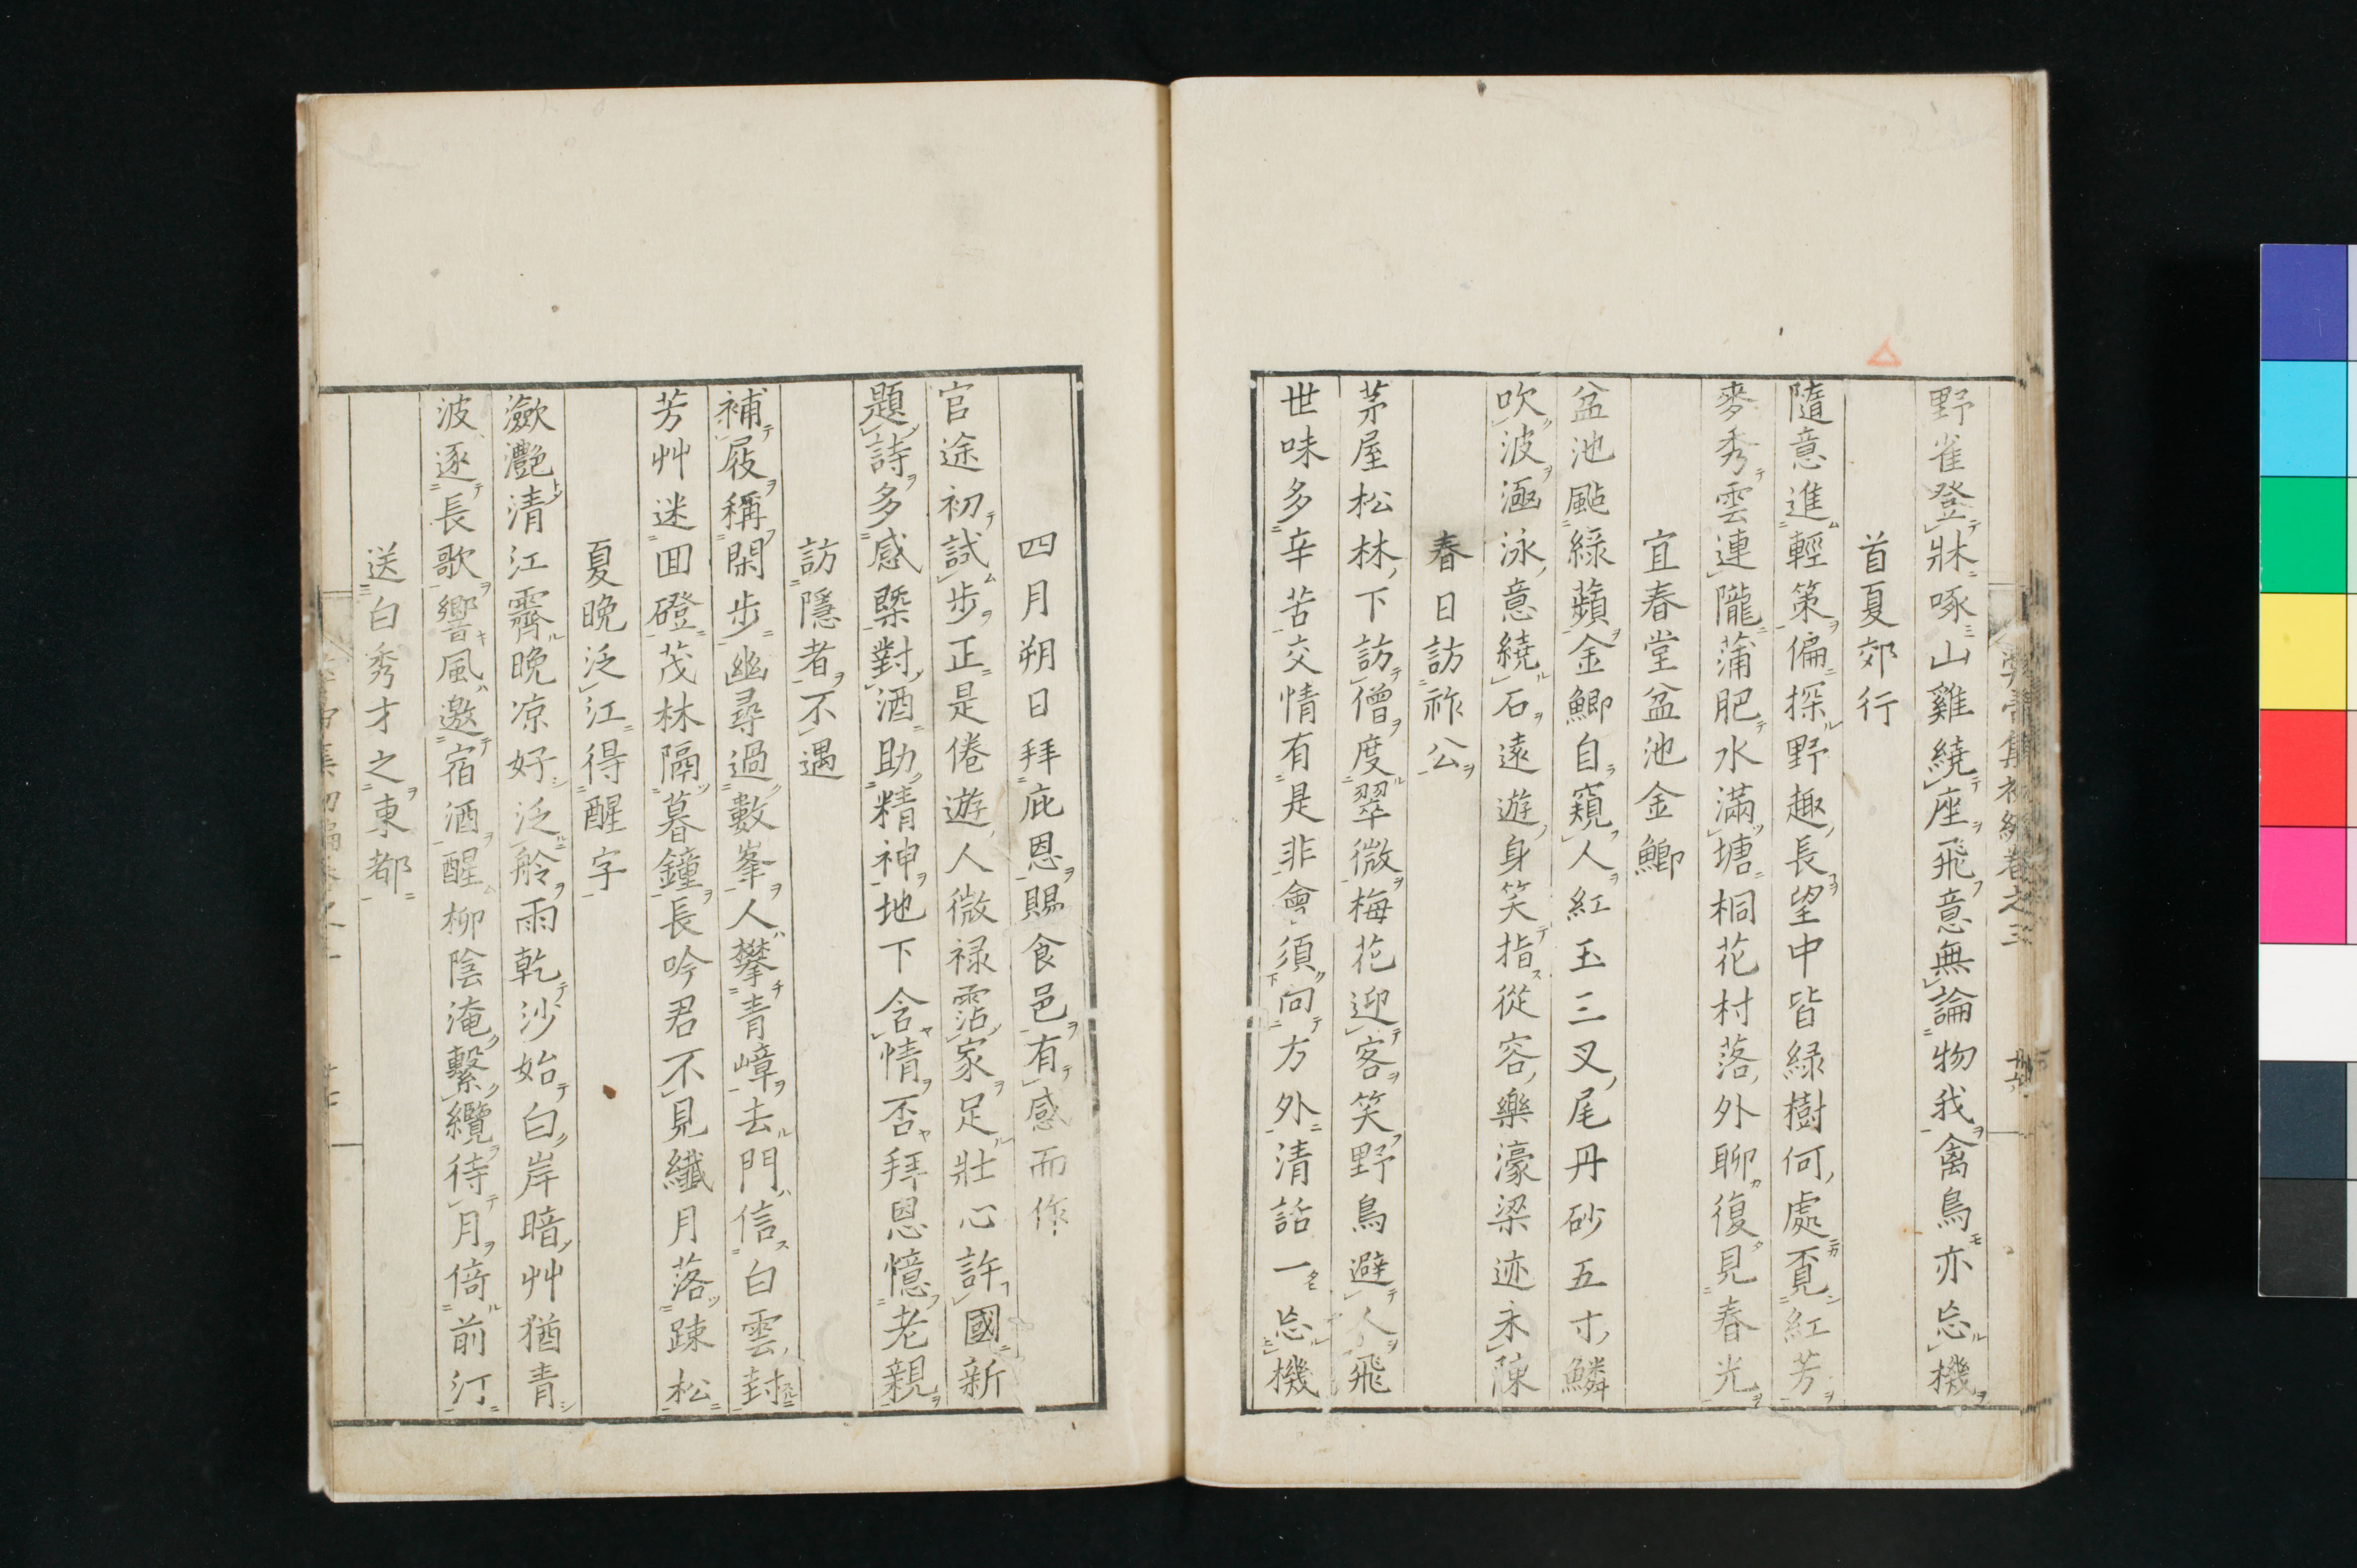 野雀登牀啄山雞繞座飛意無論物我禽鳥亦忘機
首夏郊行
隨意進輕策偏探野趣長望中皆緑樹何處覓紅芳
麥秀雲連隴蒲肥水滿塘桐花村落外聊復見春光
宜春堂盆池金鯽
盆池颭緑蘋金鯽自窺人紅玉三叉尾丹砂五寸鱗
吹波涵泳意繞石遠遊身笑指從容樂濠梁迹未陳
春日訪祚公
茅屋松林下訪僧度翠微梅花迎客笑野鳥避人飛
世味多辛苦交情有是非會須向方外清話一忘機
四月朔日拜庇恩賜食邑有感而作
官途初試步正是倦遊人微禄霑家足壯心許國新
題詩多感槩對酒助精神地下含情否拜恩憶老親
訪隱者不遇
補屐稱閑歩幽尋過數峯人攀青嶂去門信白雲封
芳艸迷囬磴茂林隔暮鐘長吟君不見纖月落踈松
夏晩泛江得醒字
瀲灔清江霽晩凉好泛舲雨乾沙始白岸暗艸猶青
波逐長歌響風邀宿酒醒柳陰淹繫纜待月倚前汀
送白秀才之東都